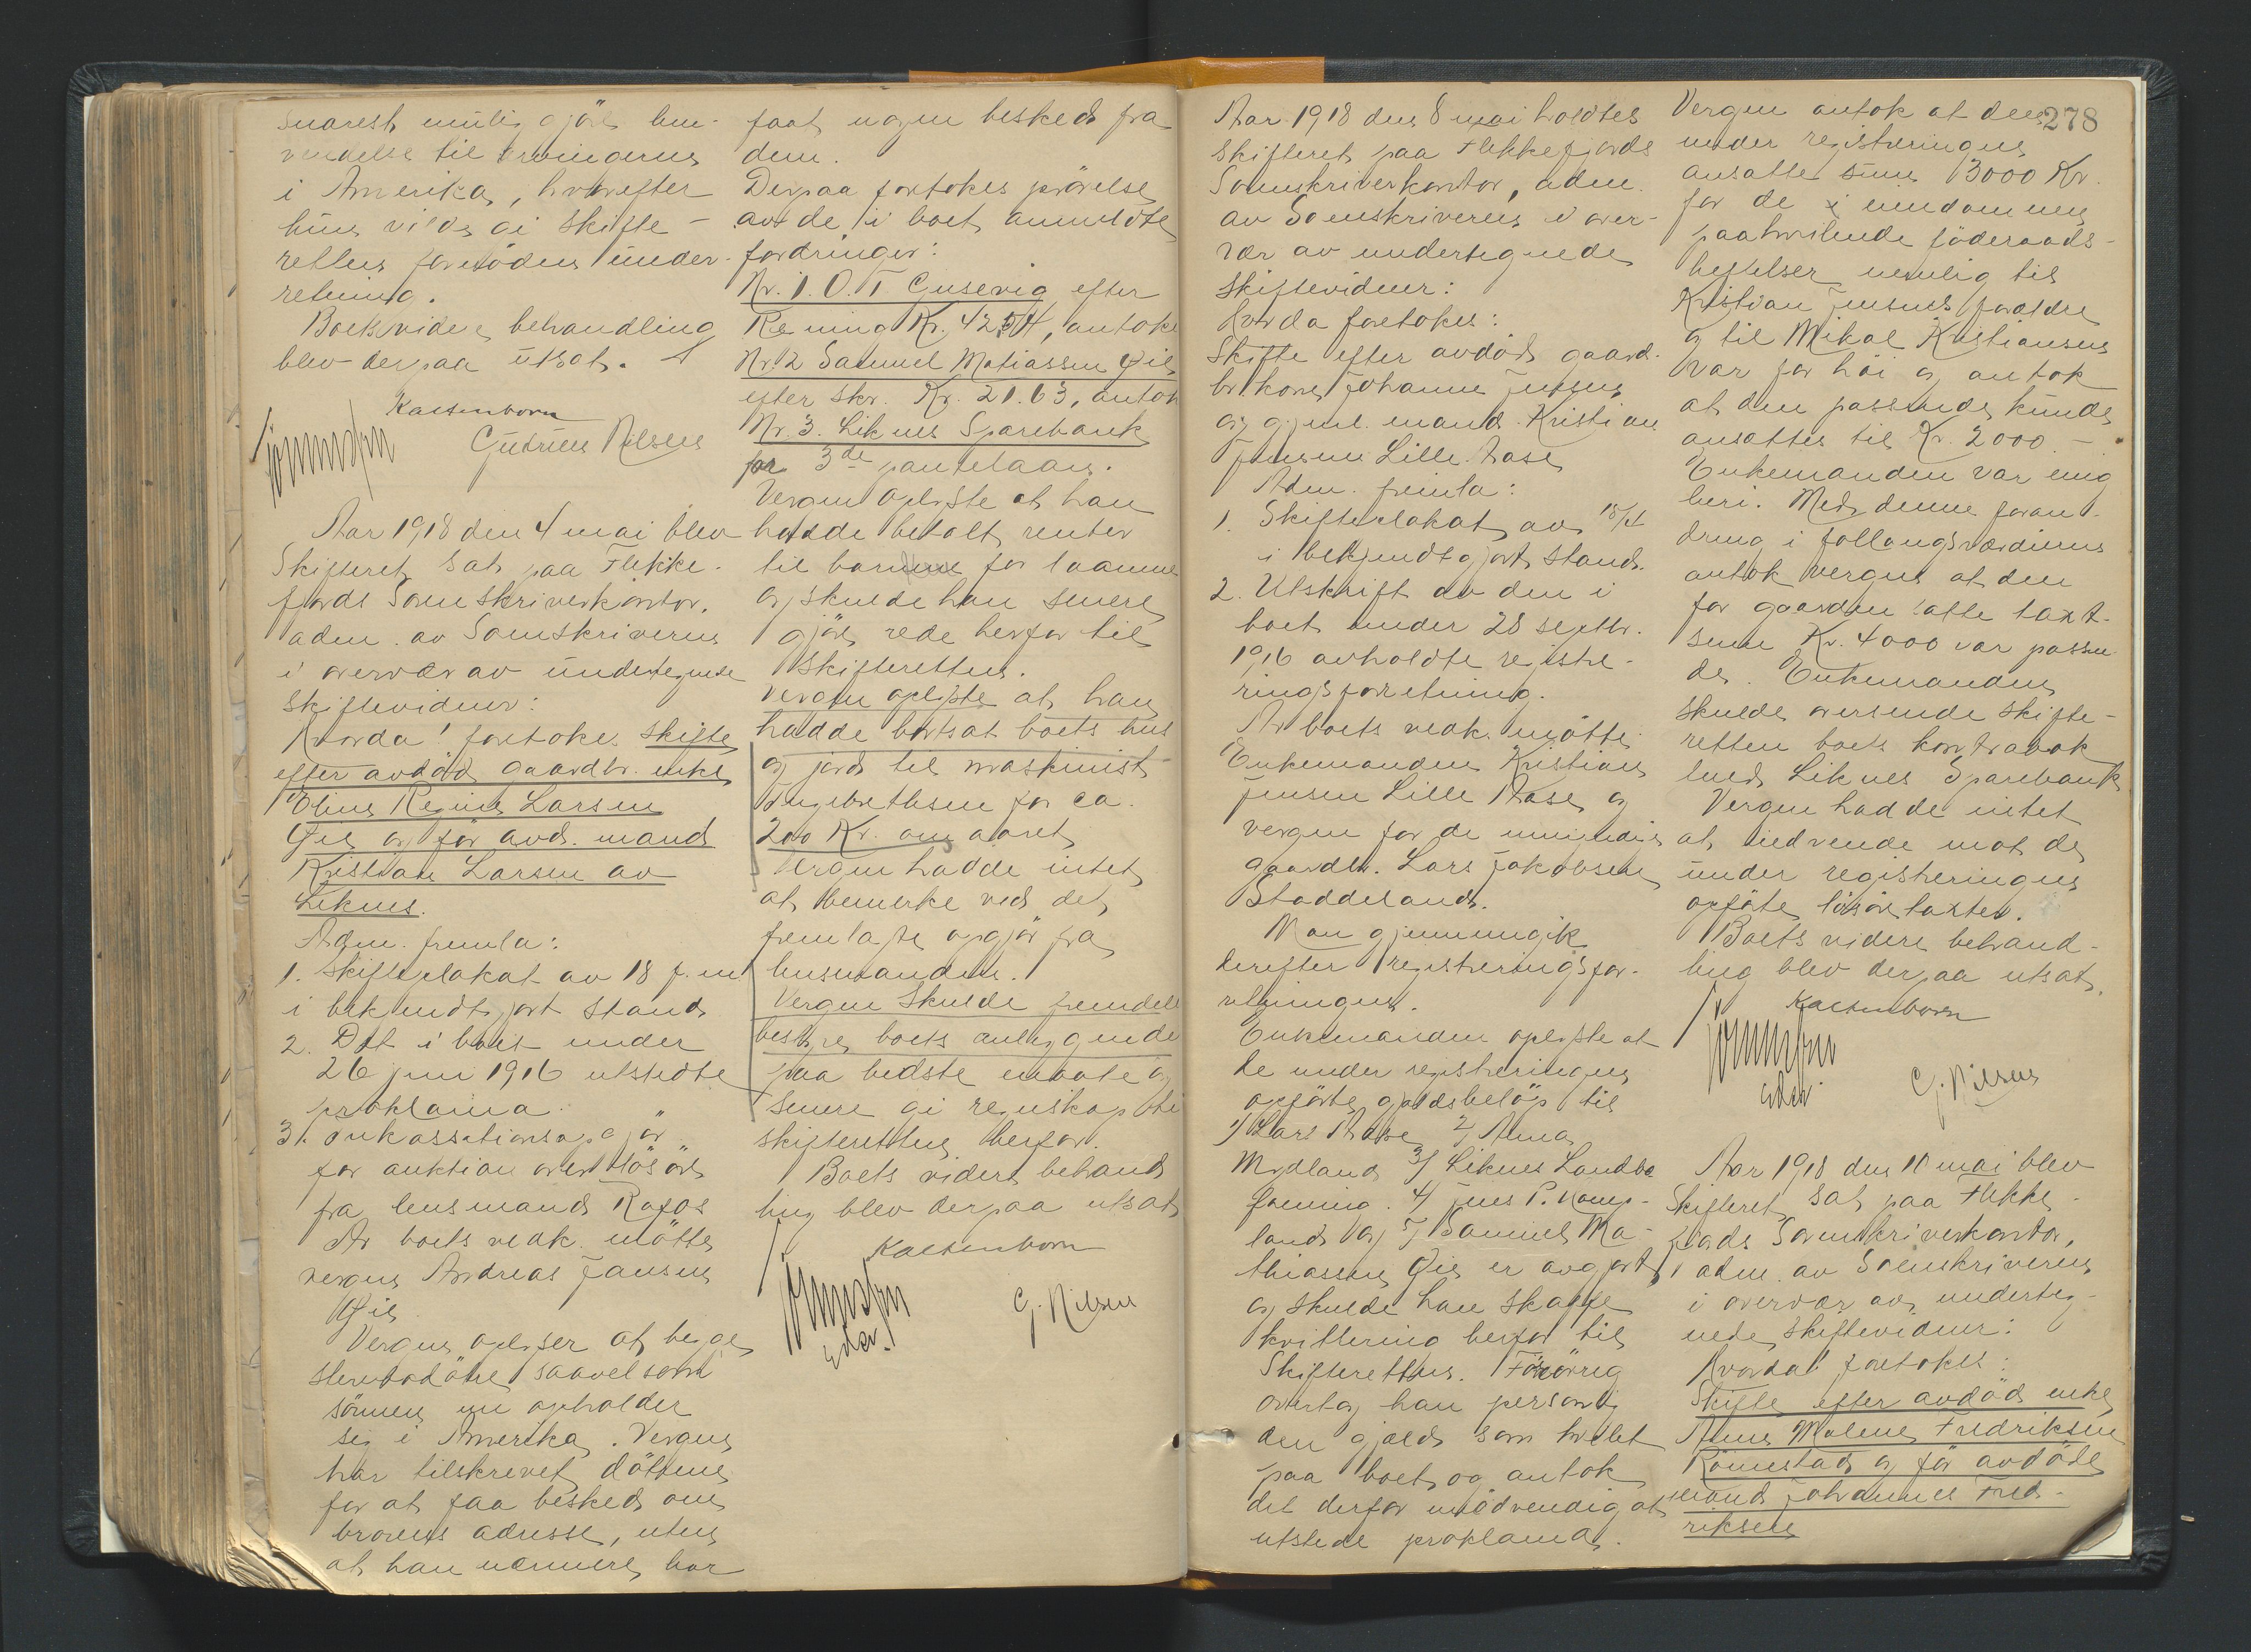 snarest mulig gjöre hen-
vendelse til arvingerne
i Amerika, hvorefter
hun vilde gi skifte-
retten fornöden under-
retning.
Boets videre behandling
blev derpaa utsat.
Kaltenborn
Gudrun Nilsen
Aar 1918 den 4 mai blev
Skifteret sat paa Flekke-
fjords Sorenskriverkontor,
adm. av Sorenskriveren
i overvær av undertegnede
skiftevidner:
Hvorda! foretokes skifte
efter avdöd gaardbr. enke
Eline Regine Larsen
Öie og för avd. mand
Kristian Larsen av
Liknes.
Adm. fremla:
1. Skifteplakat av 18 f. m.
i bekjendtgjort stand
2. Det i boet under
26 juni 1916 utstedte
proklama.
3. Inkassationsopgjör
for auktion over lösöre
fra lensmand Rafos
For boets vedk. mötte
vergen Andreas Jansen
Öie
Vergen oplyser at begge
stervbodötre saavel som
sönnen nu opholder
sig i Amerika. Vergen
har tilskrevet döttrene
for at faa besked om
brorens adresse, uten
at han nærmere har
faat nogen besked fra
dem.
Derpaa foretokes prövelse
av de i boet anmeldte
fordringer:
Nr. 1. O. T. Gusevig efter
Rening Kr. 42,54, antokes
Nr. 2 Samuel Matiassen Öie
efter skr. Kr. 21.63, antok
Nr. 3. Liknes Sparebank
for 3de pantelaan.
Vergen oplyste at han
hadde betalt renter
til banken for laanene
og skulde han senere
gjöre rede herfor til
Skifteretten.
Vergen oplyste at han
hadde bortsat boets hus
og jord til maskinist
Ingebrethsen for ca.
200 Kr. om aaret
Vergen hadde intet
at bemerke ved det
fremlagte opgjör fra
lensmanden.
Vergen skulde fremdeles
bestyre boets anliggende
paa bedste maate og
senere gi regnskap til
skifteretten herfor.
Boets videre behand
ling blev derpaa utsat
Kaltenborn
G. Nilsen
278
Aar 1918 den 8 mai holdtes
skifteret paa Flekkefjords
Sorenskriverkontor, adm.
av Sorenskriveren i over-
vær av undertegnede
skiftevidner:
Hvorda foretokes:
Skifte efter avdöd gaard-
br. kone Johanne Jensen
og gjenl. mand Kristian
Jensen Lille Aase
Adm. fremla:
1. Skifteplakat av 18/4
i bekjendtgjort stand.
2. Utskrift av den i
boet under 28 septbr.
1916 avholdte registre-
ringsforretning.
For boets vedk. mötte
Enkemanden Kristian
Jensen Lille Aase og
vergen for de umyndige
gaardbr. Lars Jakobsen
Staddeland.
Man gjennemgik
derefter registreringsfor-
retningen.
Enkemanden oplyste at
de under registreringen
opförte gjældsbelöp til
1) Lars Aase 2) Alma
Mydland 3) Liknes Landbo
forening. 4) Jens P. Kamp-
land og 5) Samuel Ma-
thiassen Öie er avgjort,
og skulde han skaffe
kvittering herfor til
Skifteretten. Forövrig
overtog han personlig
den gjæld som hvilet
paa boet og antok
det derfor unödvendig at
utstede proklama.
Vergen antok at den
under registreringen
ansatte sum 3000 Kr.
for de i eiendommen
paahvilende föderaads-
heftelser nemlig til
Kristian Jensens forældre
og til Mikal Kristiansen
var for höi og antok
at den passende kunde
ansættes til Kr. 2000.-
Enkemanden var enig
heri. Med denne foran-
dring i follaugsværdierne
antok vergen at den
for gaarden satte takst-
sum Kr. 4000 var passen
de. Enkemanden
skulde oversende skifte-
retten boets kontrabok
med Liknes Sparebank
Vergen hadde intet
at indvende mot de
under registreringen
opförte lösöretakster.
Boets videre behand-
ling blev derpaa utsat.
Kaltenborn
G. Nilsen
Aar 1918 den 10 mai blev
Skifteret sat paa Flekke-
fjords Sorenskriverkontor,
adm. av Sorenskriveren
i overvær av underteg-
nede skiftevidner:
Hvorda! foretokes:
Skifte efter avdöd enke
Anne Malene Fredriksen
Römestad og för avdöde
mand Johannes Fred-
riksen